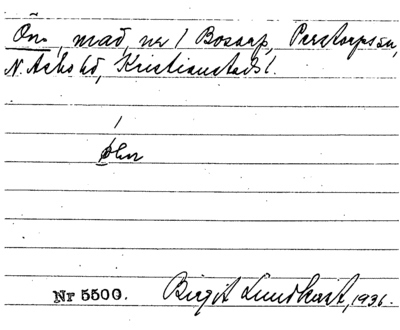 Ön, mad, nr 1 Bosarp, Perstorps sn,
N. Åsbo hd, Kristianstads l.
Nr 5500. Birgit Lundkvist, 1936.